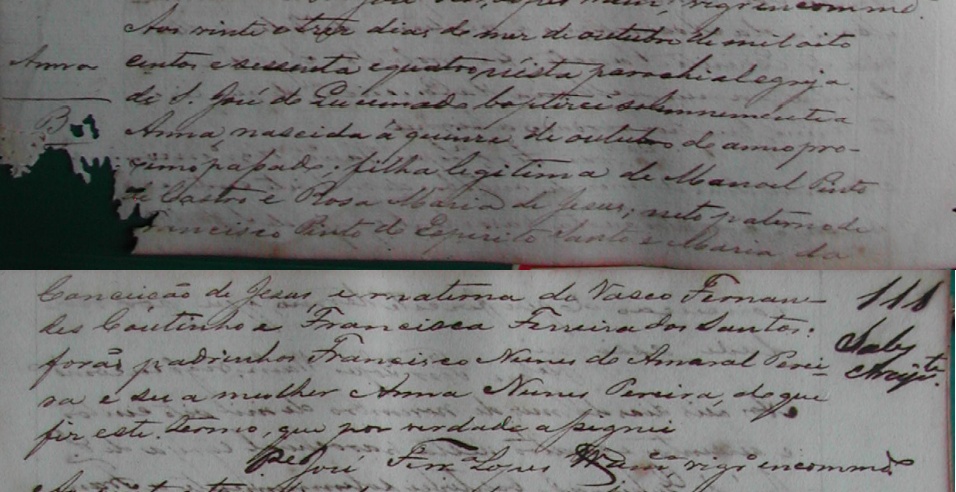 vigr encommdo.
Aos vinte e trez dias do mez de outubro de mil oito
Anna
centos e sessenta e quatro n'esta parochial egreja
de S. José do Queimado baptizei solemnemente a
Anna, nascida á quinze de outubro do anno pro-
ximo passado, filha legitima de Manoel Pinto
de Castro e Rosa Maria de Jesus, neto paterno de
Francisco Pinto do Espirito Santo e Maria da
Conceição de Jesus, e materna do Vasco Fernan-
des Coutinho e Francisca Ferreira dos Santos:
forão padrinhos Francisco Nunes do Amaral Perei-
ra e sua mulher Anna Nunes Pereira, do que
fiz este termo, que por verdade assignei
Pe José Ferra Lopes vigro encommdo
118